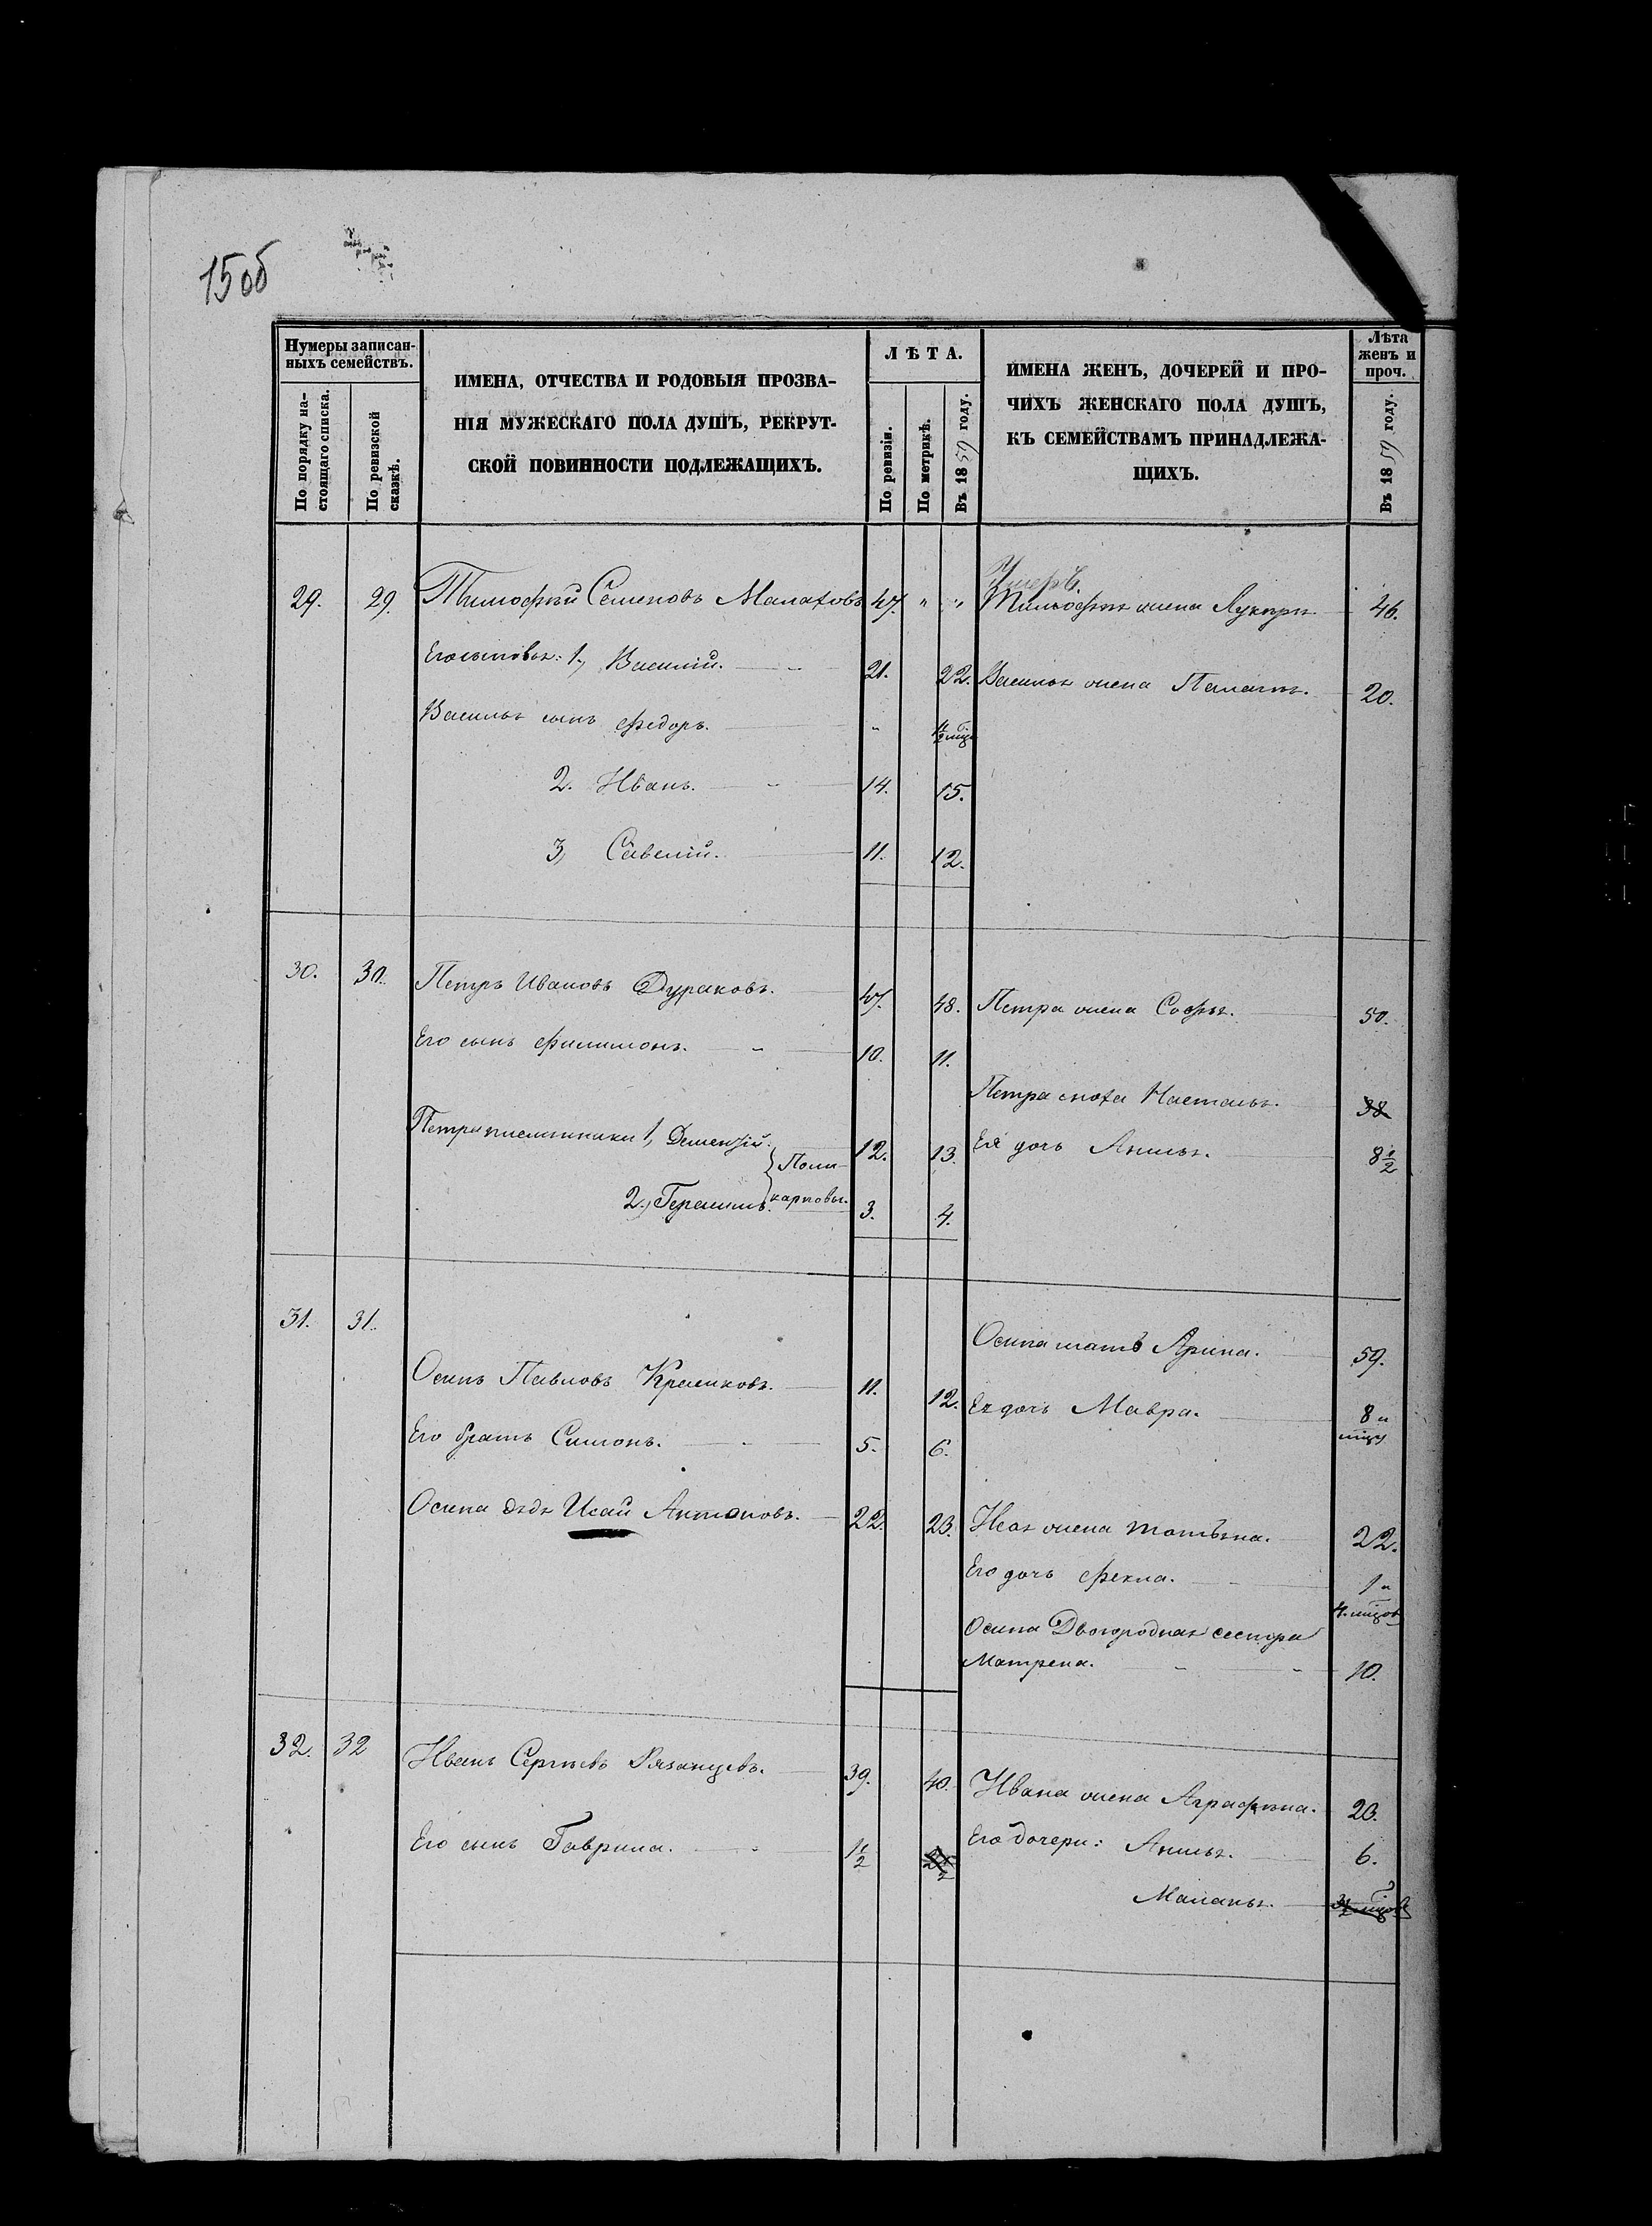 15об
Нумеры записан-
ныхъ семействъ.
По порядку на-
стоящаго списка.
По ревизской
сказкѣ.
ИМЕНА, ОТЧЕСТВА И РОДОВЫЯ ПРОЗВА-
НІЯ МУЖЕСКАГО ПОЛА ДУШЪ, РЕКРУТ-
СКОЙ ПОВИННОСТИ ПОДЛЕЖАЩИХЪ.
ЛѢТА.
По ревизіи.
По метрикѣ.
Въ 1859 году.
ИМЕНА ЖЕНЪ, ДОЧЕРЕЙ И ПРО-
ЧИХЪ ЖЕНСКАГО ПОЛА ДУШЪ,
КЪ СЕМЕЙСТВАМЪ ПРИНАДЛЕЖА-
ЩИХЪ.
Лѣта
женъ и
проч.
Въ 1859 году.
29. 29. Тимофѣй Семеновъ Малаховъ 47. " " Тимофѣя жена Лукерья 46.
Его сыновья: 1, Василій. 21. 22. Василья жена Палагѣя. 20.
Василья сынъ Федоръ. "
2. Иванъ. 14. 15.
3, Савелій. 11. 12.
30. 30. Петръ Ивановъ Дураковъ. 47. 48. Петра жена Софья. 50.
Его сынъ Филимонъ. 10. 11.
Петра сноха Настасья. 38
Петра племянники 1, Дементій. 12. 13. Ея дочь Анисья. 8 1/2
Поли-
2, Герасимъ. карповы. 3. 4.
31. 31.
Осипа мать Арина. 59.
Осипъ Павловъ Красиковъ. 11. 12. Ея дочь Мавра. 8 м
Его братъ Симонъ. 5. 6.
Осипа дядя Исай Антоновъ. 22. 23. Исая жена Татьяна. 22.
Его дочь Фекла. 1 и
4. мѣцов
Осипа Двоюродная сестра
Матрена. 10.
32. 32 Иванъ Сергѣевъ Рязанцевъ. 39. 40. Ивана жена Аграфѣна. 23.
Его сынъ Гаврила. 1 1/2 Его дочери: Анисья. 6.
Маланья.